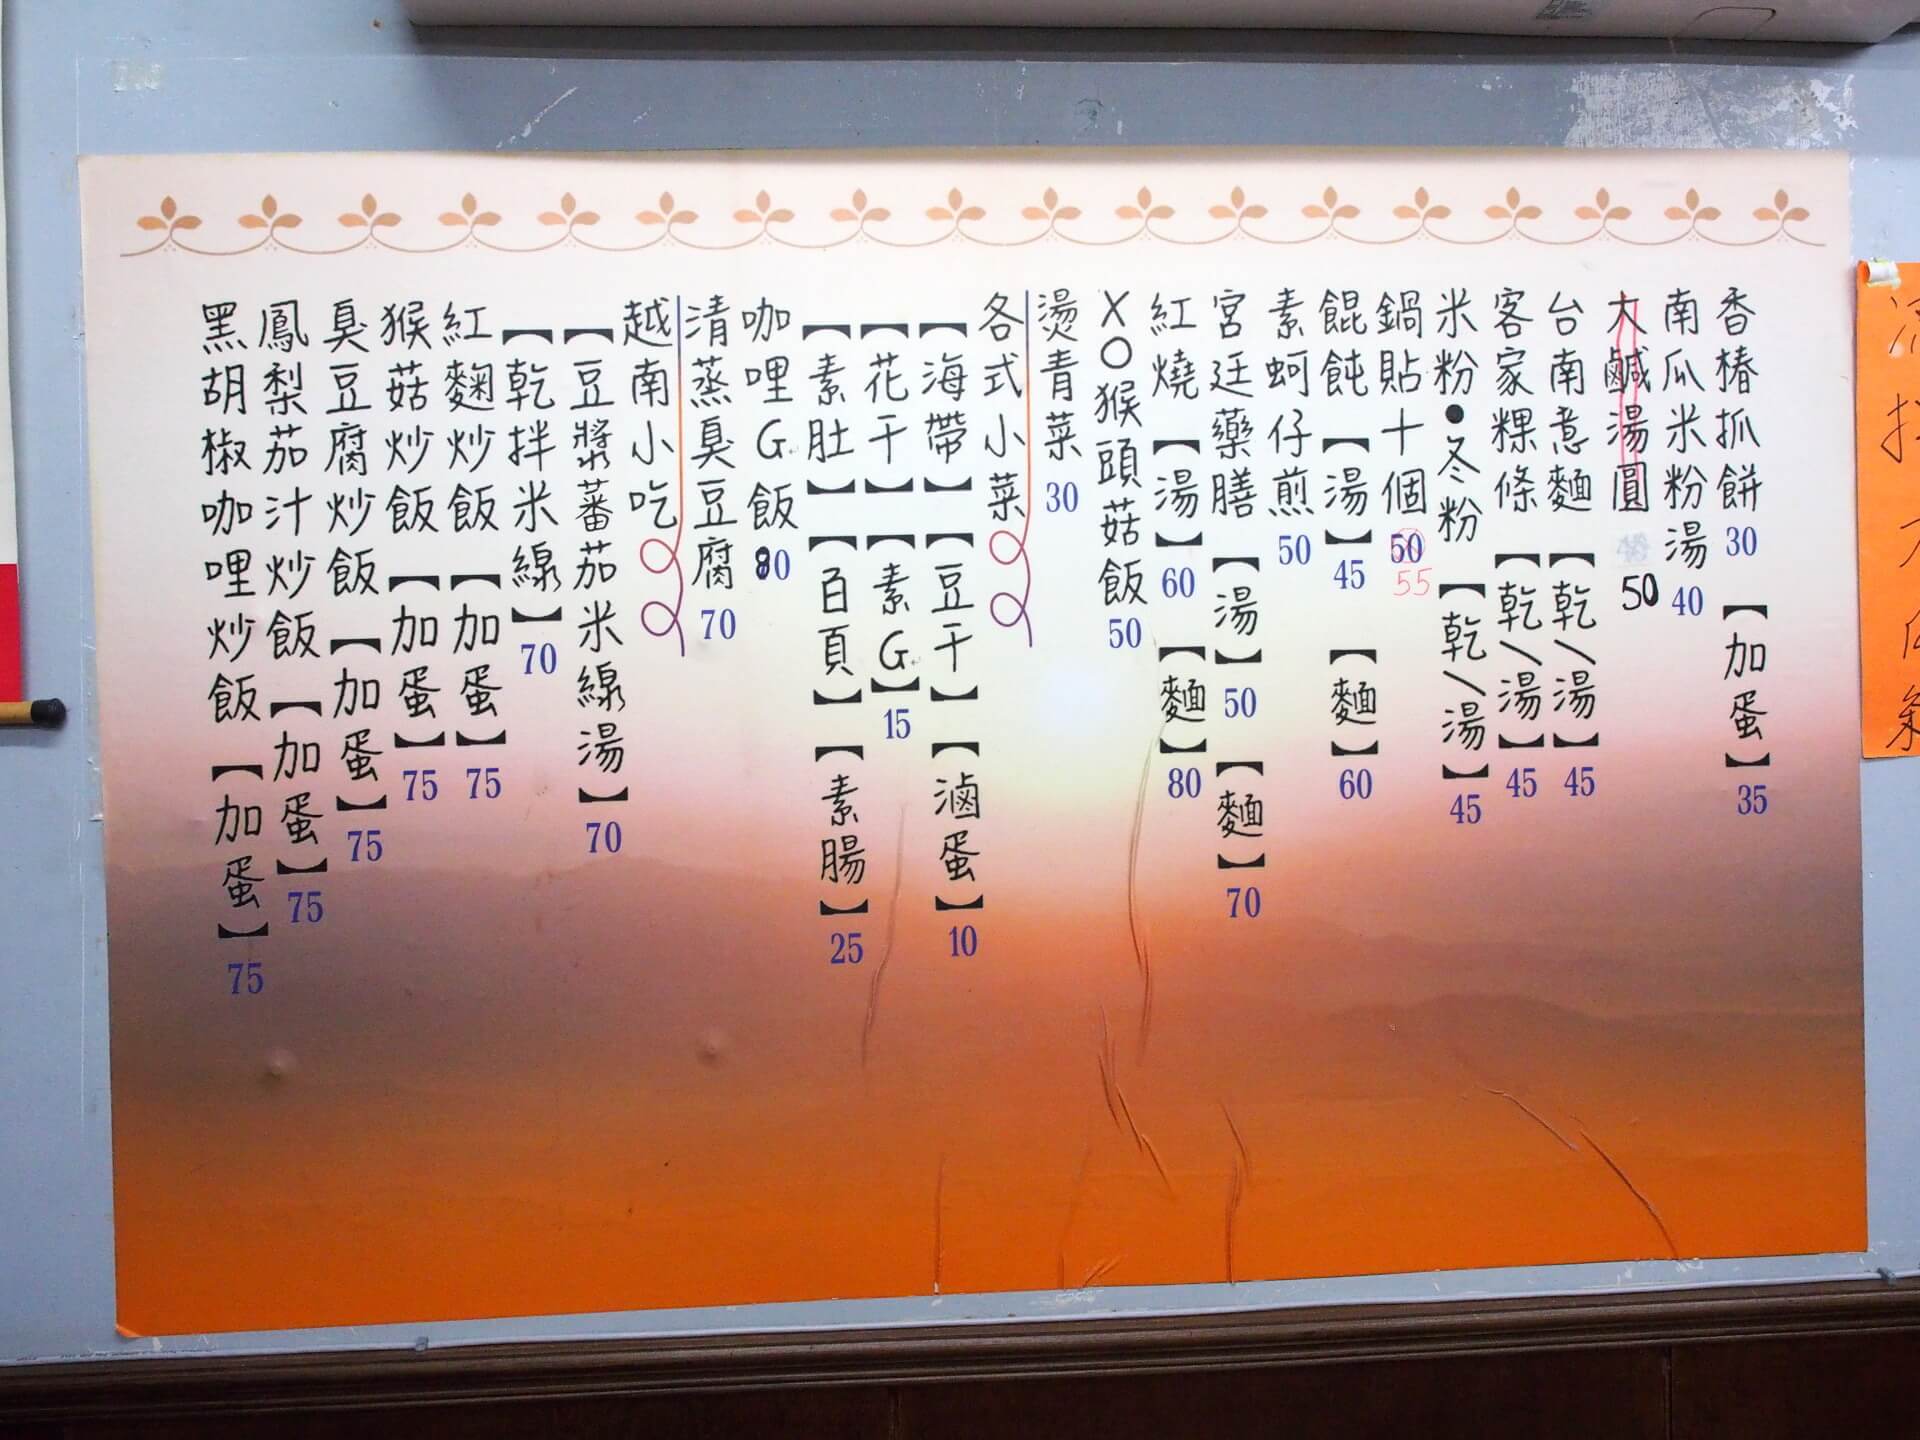 香椿抓餅30【加蛋】35
南瓜米粉湯40
大鹹湯圓50
台南意麵【乾/湯】45
客家粿條【乾/湯】45
米粉●冬粉【乾/湯】45
鍋貼十個50 55
餛飩【湯】45【麵】60
素蚵仔煎50
宮廷藥膳【湯】50【麵】70
紅燒【湯】60【麵】80
XO猴頭菇飯50
燙青菜30
各式小菜
【海帶】【豆干】【滷蛋】10
【花干】【素G】15
【素肚】【百頁】【素腸】25
咖哩G飯80
清蒸臭豆腐70
越南小吃
【豆漿蕃茄米線湯】70
【乾拌米線】70
紅麴炒飯【加蛋】75
猴菇炒飯【加蛋】75
臭豆腐炒飯【加蛋】75
鳳梨茄汁炒飯【加蛋】75
黑胡椒咖哩炒飯【加蛋】75